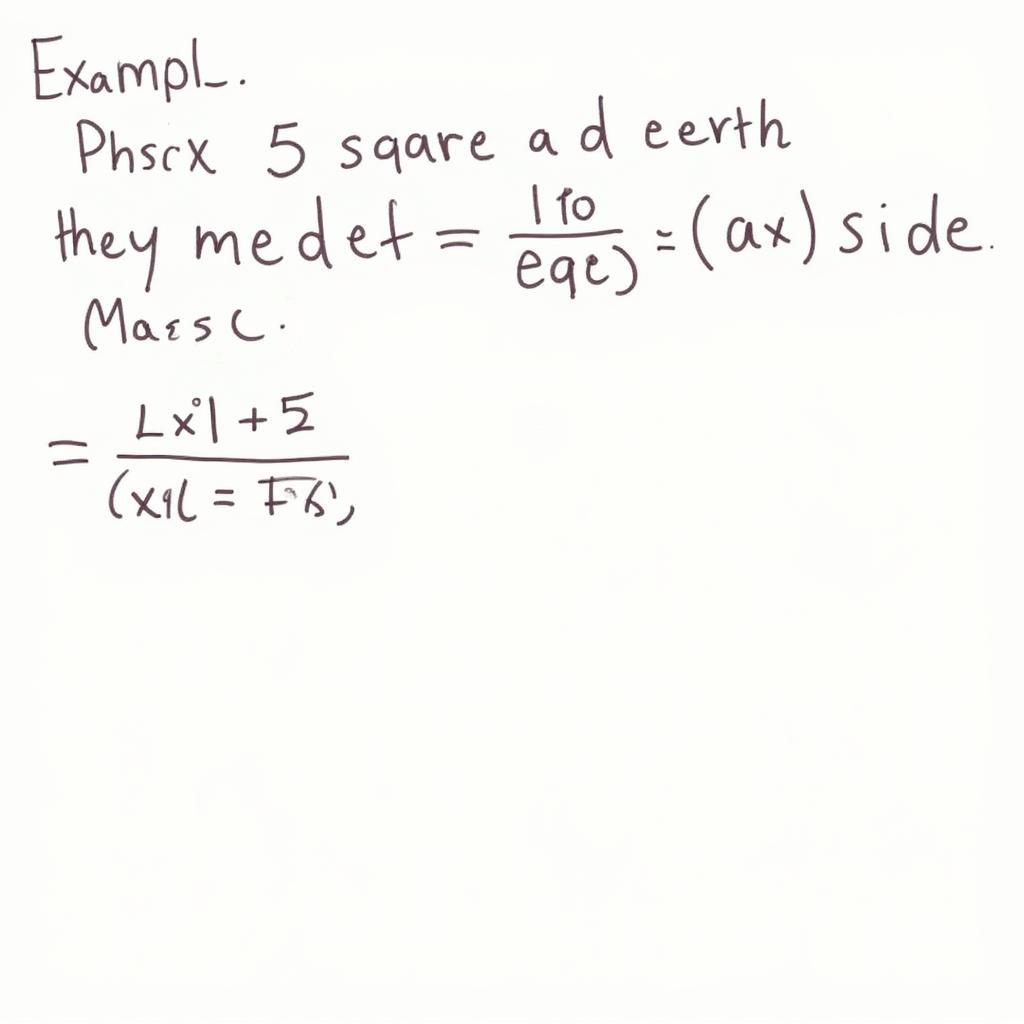 Exampl.
Phscx 5 sqare a d eerth
they medet = 1 10 / eqe) = (ax) side.
Maess C.
= Lx°1 + 5